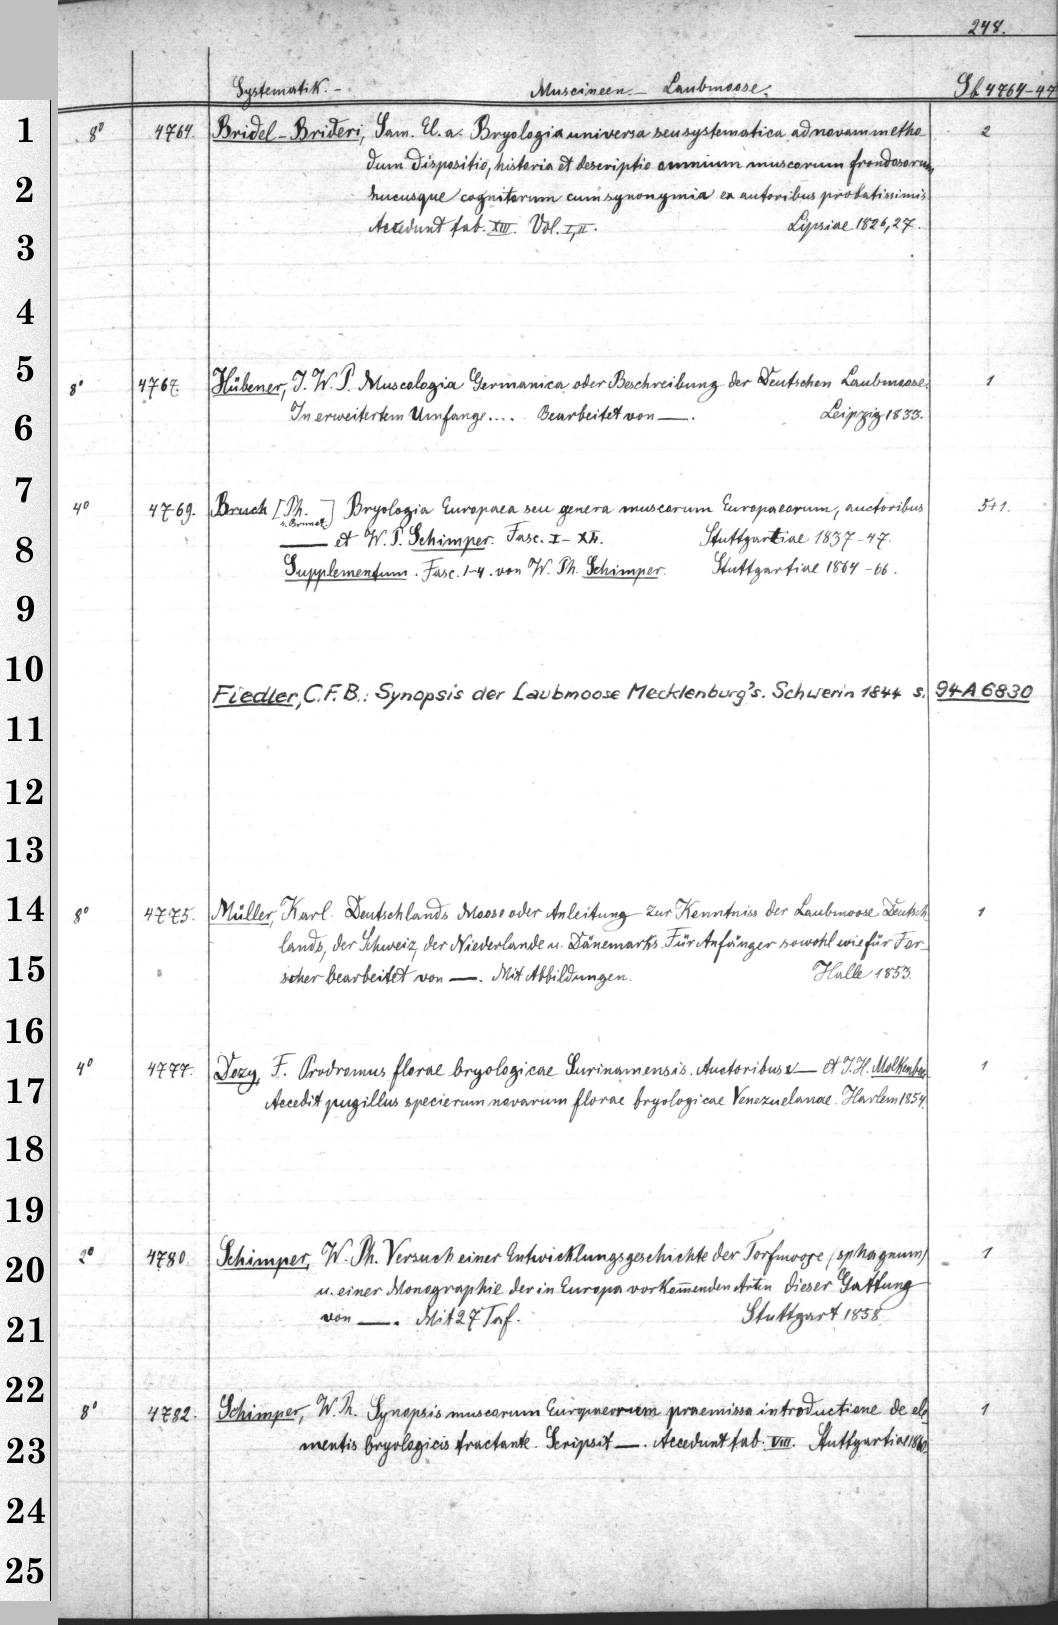 248.
Systematik. – Muscineen. – Laubmoose. Sb 4764-47
8° 4764. Bridel-Brideri, Sam. El. a. Bryologia universa seu systematica ad novam metho
dum dispositio, historia et descriptio omnium muscorum frondosorum
hucusque cognitorum cum synonymia ex autoribus probatissimis
Accedunt tab. XIII. Vol. I, II. Lipsiae 1826, 27. 2
8° 4767. Hübener, J. W. P. Muscologia Germanica oder Beschreibung der Deutschen Laubmoose. 1
In erweitertem Umfange.... Bearbeitet von —. Leipzig 1833.
4° 4769. Bruch [Ph. ] Bryologia Europaea seu genera muscorum Europaeorum, auctoribus 5+1.
— et W. P. Schimper. Fasc. I-XX. Stuttgartiae 1837-47.
Supplementum. Fasc. 1-4. von W. Ph. Schimper. Stuttgartiae 1864-66.
Fiedler, C.F.B.: Synopsis der Laubmoose Mecklenburg's. Schwerin 1844 s. 94-A 6830
8° 4775. Müller, Karl. Deutschlands Moose oder Anleitung zur Kenntniss der Laubmoose Deutsch- 1
lands, der Schweiz, der Niederlande u. Dänemarks. Für Anfänger sowohl wie für For-
scher bearbeitet von —. Mit Abbildungen. Halle 1853.
4° 4777. Dozy, F. Prodromus florae bryologicae Surinamensis. Auctoribus — et J. H. Molkenboer 1
Accedit pugillus specierum novarum florae bryologicae Venezuelanae. Harlem 1854.
2° 4780 Schimper, W. Ph. Versuch einer Entwicklungsgeschichte der Torfmoose (sphagnum) 1
u. einer Monographie der in Europa vorkom̅enden Arten dieser Gattung
von —. Mit 27 Taf. Stuttgart 1858
8° 4782. Schimper, W. Ph. Synopsis muscorum Europaeorum praemissa introductione de ele 1
mentis bryologicis tractante. Scripsit —. Accedunt tab. VIII. Stuttgartiae 1860.
1
2
3
4
5
6
7
8
9
10
11
12
13
14
15
16
17
18
19
20
21
22
23
24
25